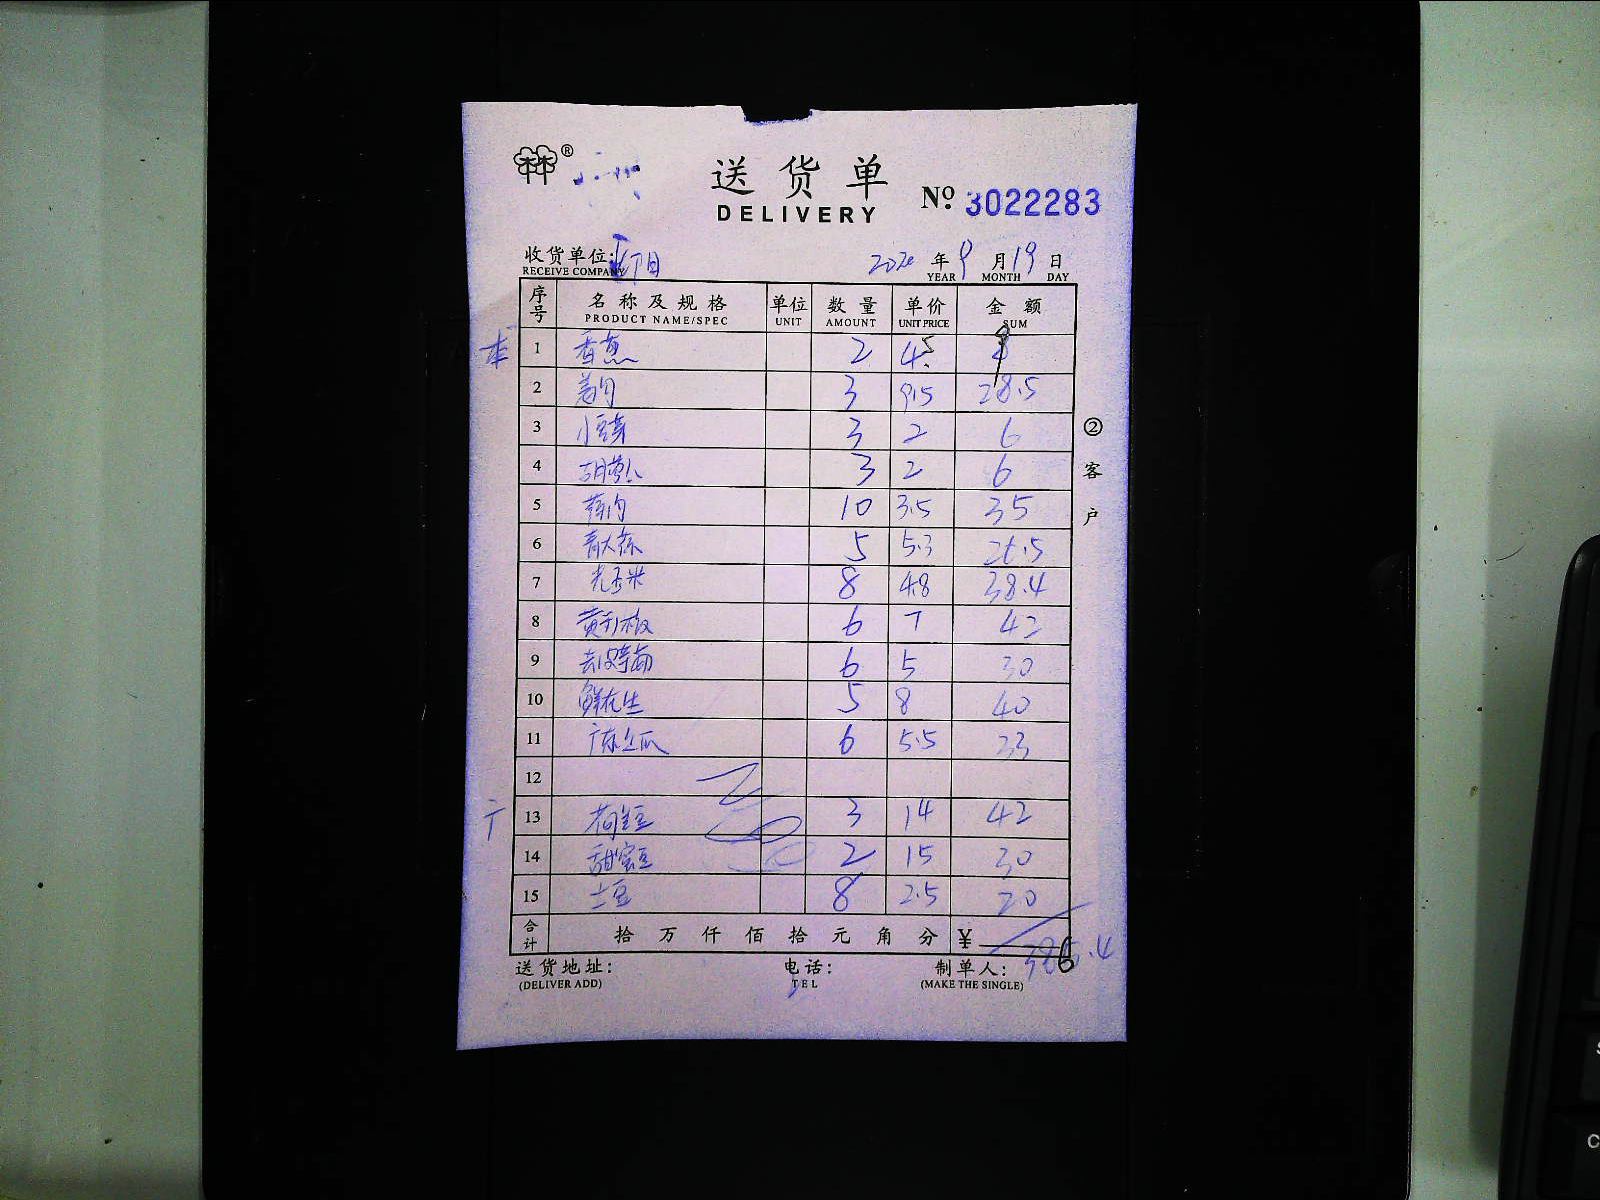 ® 送货单
DELIVERY № 3022283
收货单位:
RECEIVE COMPANY 2020 年 9 月 19 日
YEAR MONTH DAY
序号 名称及规格 单位 数量 单价 金额
PRODUCT NAME/SPEC UNIT AMOUNT UNIT PRICE SUM
1 香蕉 2 4.5 9
2 3 9.5 28.5
3 小 3 2 6
4 胡萝卜 3 2 6
5 10 3.5 35
6 青大 5 5.3 26.5
7 光玉米 8 4.8 38.4
8 6 7 42
9 去皮 6 5 30
10 鲜花生 5 8 40
11 6 5.5 33
12
13 荷兰豆 3 14 42
14 甜蜜豆 2 15 30
15 土豆 8 2.5 20
合计 拾万仟佰拾元角分 ¥ 386.4
② 客户
送货地址: 电话: 制单人:
(DELIVER ADD) TEL (MAKE THE SINGLE)